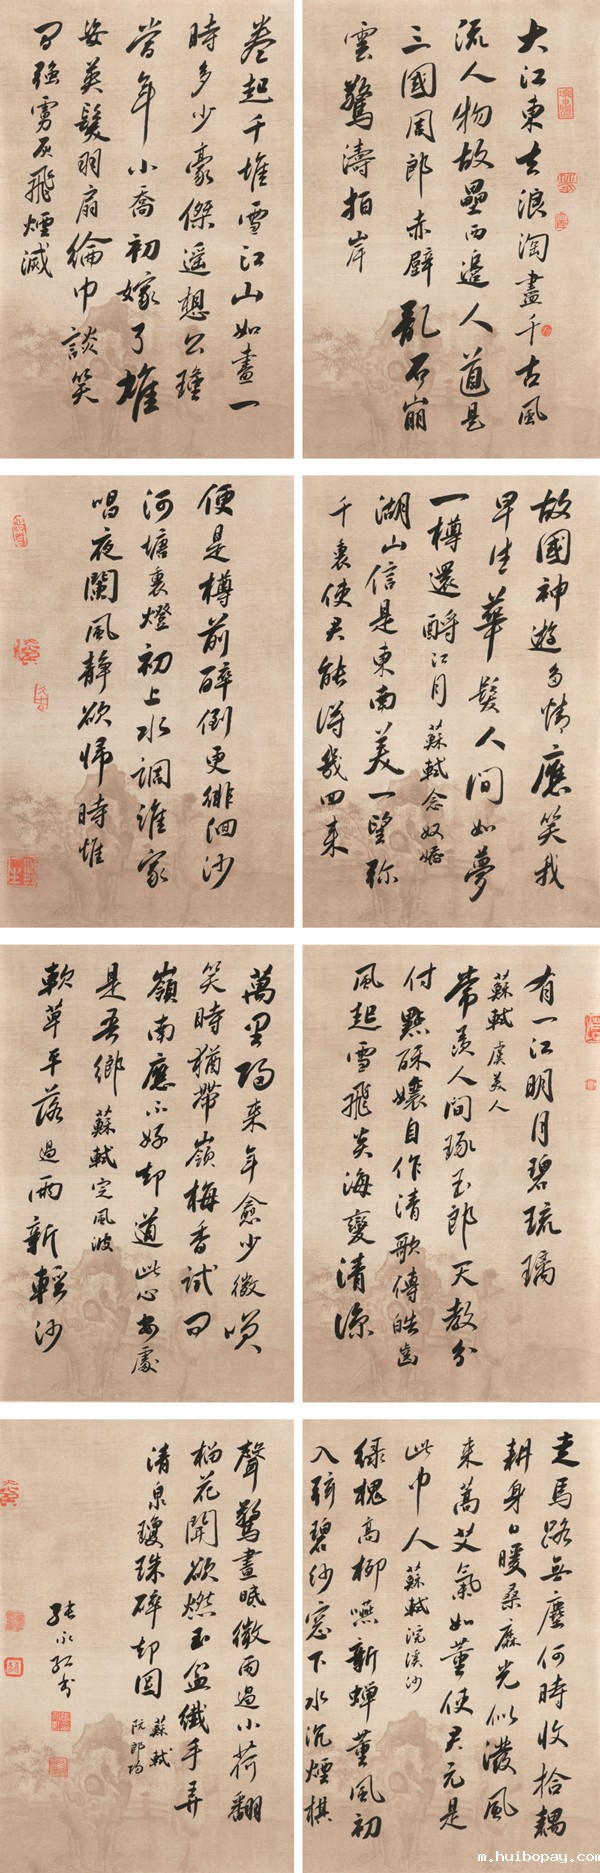 大江東去浪淘盡千古風
流人物故壘西邊人道是
三國周郎赤壁亂石崩
雲驚濤拍岸
卷起千堆雪江山如畫一
時多少豪傑遥想公瑾
當年小喬初嫁了雄
姿英髮羽扇綸巾談笑
間強虜灰飛煙滅
故國神遊多情應笑我
早生華髮人間如夢
一樽還酹江月 蘇軾念奴嬌
湖山信是東南美一望彌
千裏使君能得幾回来
便是樽前醉倒更徘徊沙
河塘裏燈初上水調誰家
唱夜闌風靜欲帰時惟
有一江明月碧琉璃
蘇軾虞美人
常羨人間琢玉郎天教分
付點酥孃自作清歌傳皓齒
風起雪飛炎海變清涼
萬里歸来年愈少微
笑時猶帶嶺梅香試問
嶺南應不好却道此心安處
是吾鄉 蘇軾定風波
軟草平莎過雨新輕沙
走馬路無塵何時收拾耦
耕身日暖桑麻光似潑風
来蒿艾氣如薰使君元是
此中人 蘇軾浣溪沙
绿槐高柳咽新蟬薰風初
入弦碧紗窓下水沉煙棋
聲驚晝眠微雨過小荷翻
榴花開欲燃玉盆纖手弄
清泉瓊珠碎却圓 蘇軾
阮郎歸
m.huibopay.com